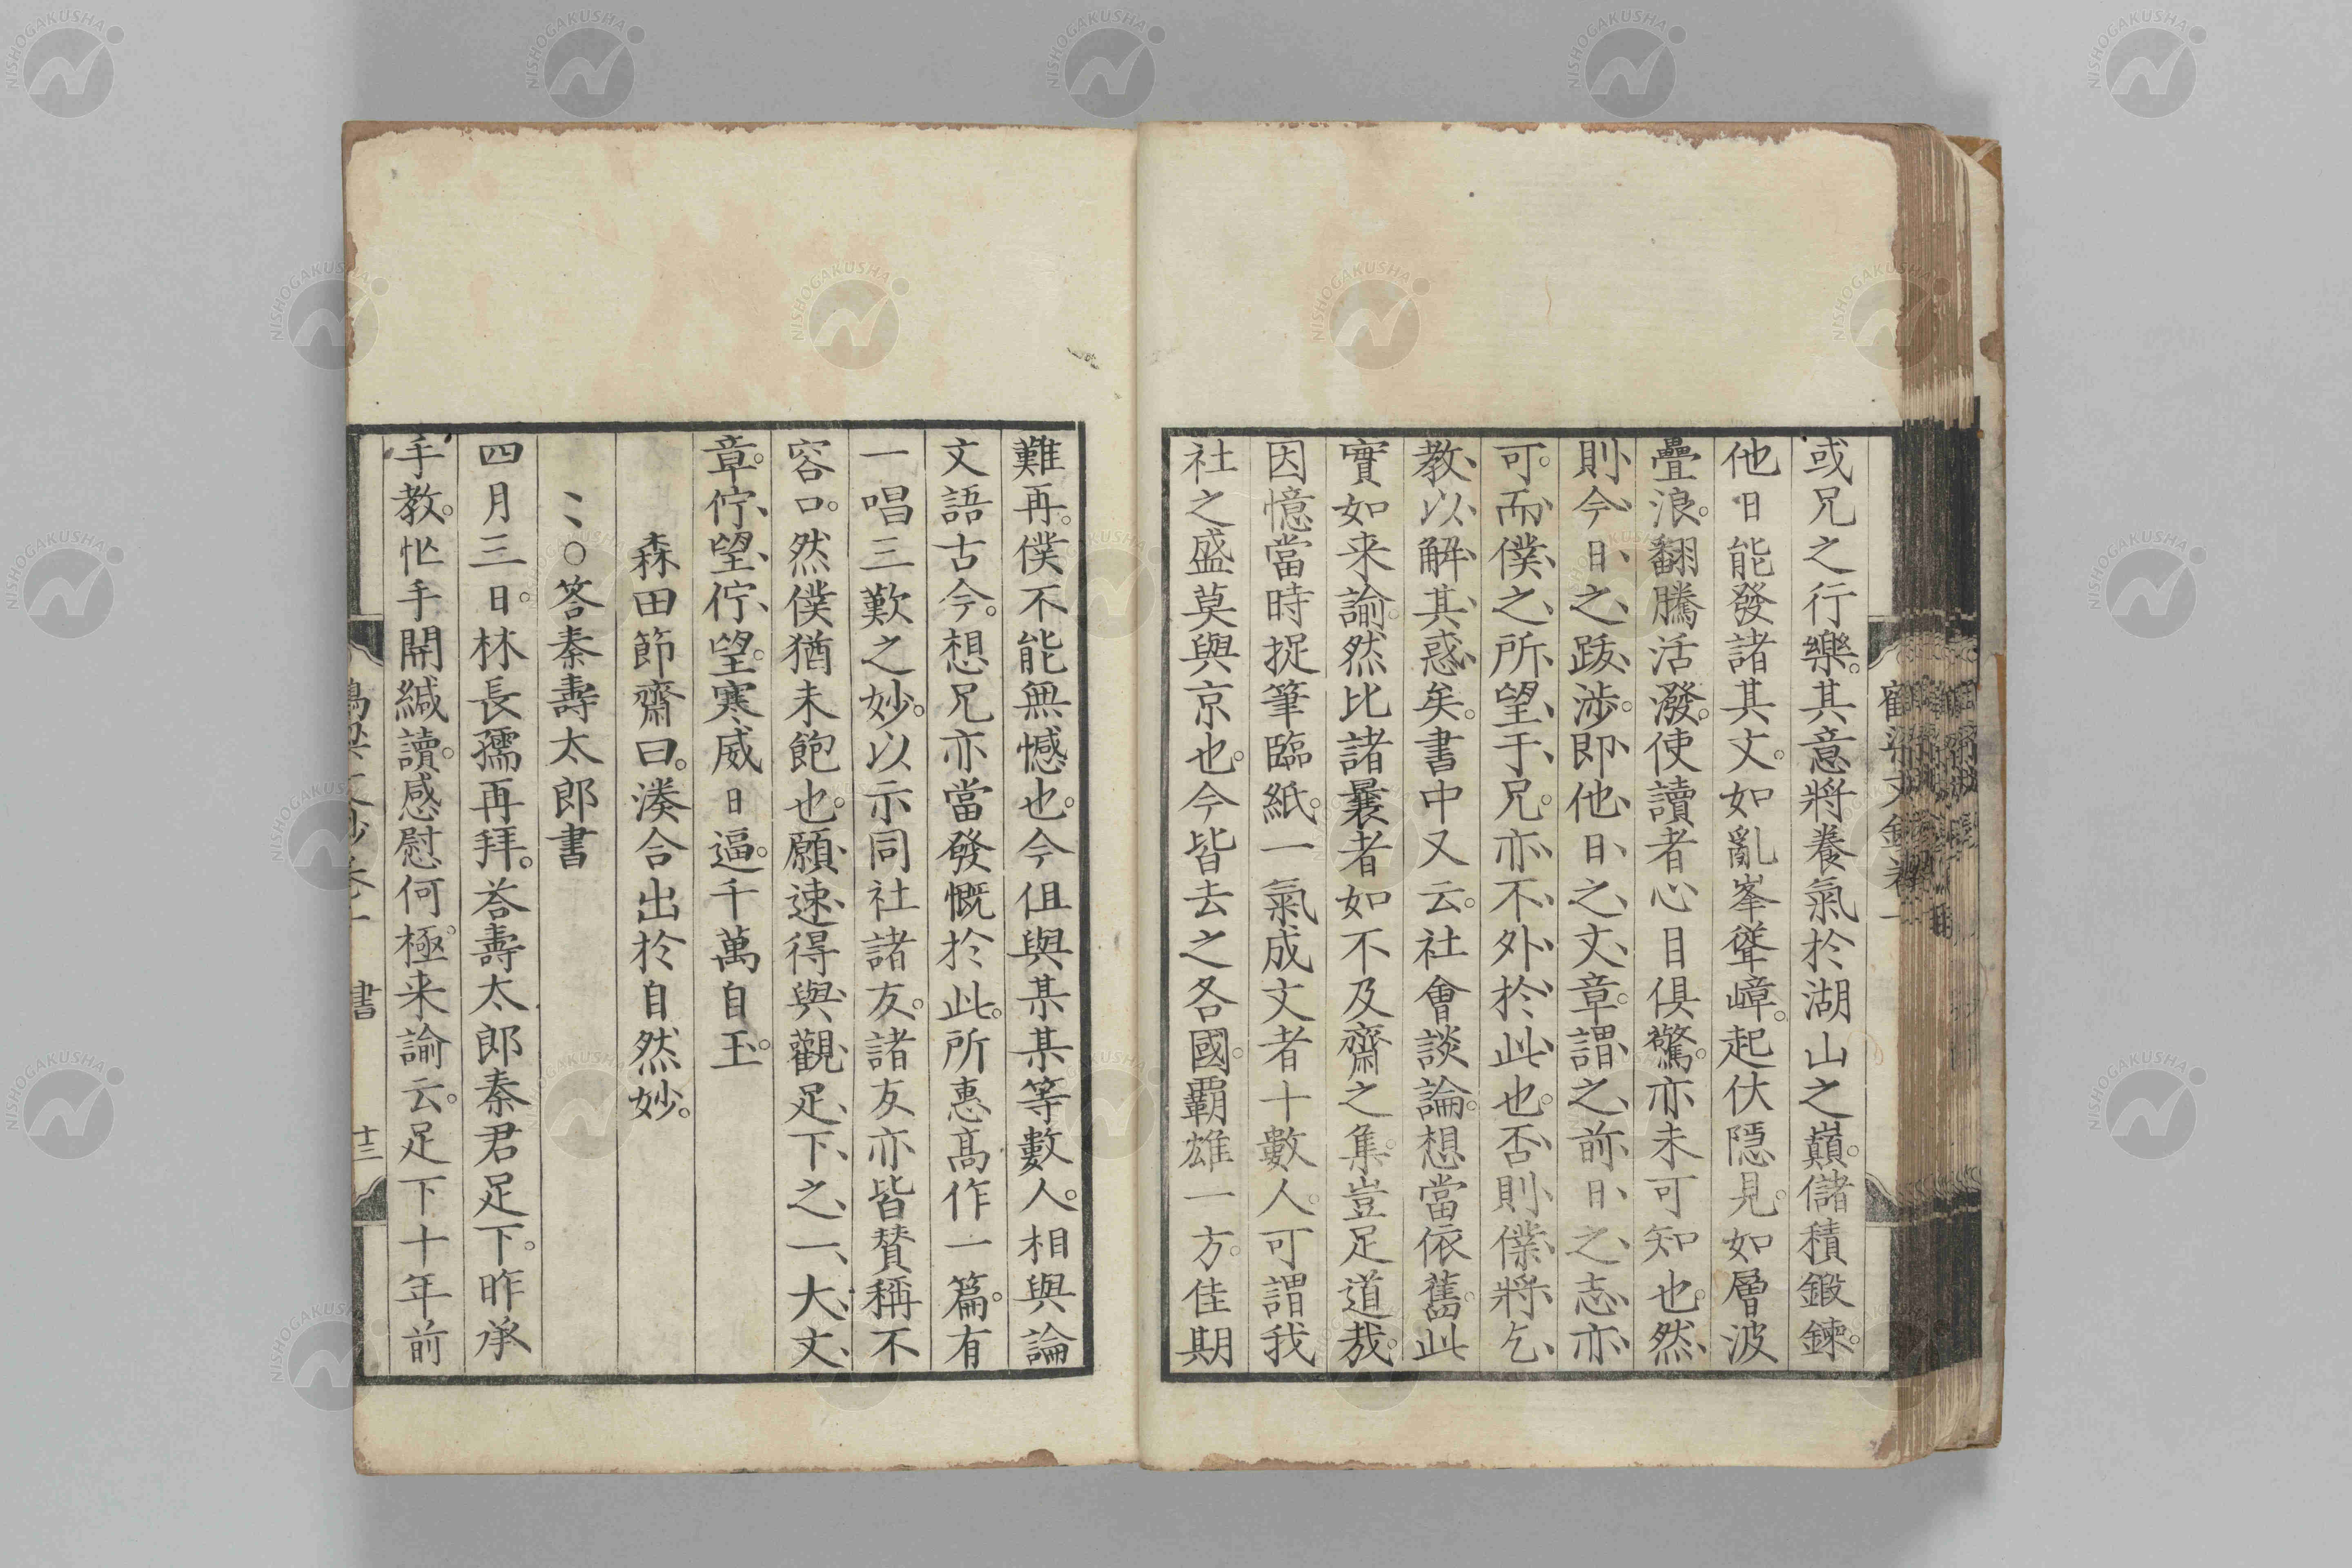 或兄之行樂。其意將養氣於湖山之巓。儲積鍛鍊。
他日能發諸其文。如亂峯聳嶂。起伏隱見。如層波
疊浪。翻騰活潑。使讀者心目俱驚。亦未可知也。然、
則、今、日、之、跋、渉。即、他、日、之、文、章。謂、之、前、日、之、志、亦、
可。而、僕、之、所、望、于、兄。亦、不、外、於、此、也。否、則、僕、將、乞、
教、以、解、其、惑、矣。書中又云。社會談論。想當依舊。此
實如来諭。然比諸曩者如不及齋之集。豈足道哉。
因憶當時捉筆臨紙。一氣成文者十數人。可謂我
社之盛莫與京也。今皆去之各國。覇雄一方。佳期
難再。僕不能無憾也。今但與某某等數人。相與論
文語古今。想兄亦當發慨於此。所惠高作一篇。有
一唱三歎之妙。以示同社諸友。諸友亦皆賛稱不
容口。然僕猶未飽也。願、速、得、與、觀、足、下、之、一、大、文、
章。佇、望、佇、望。寒威日逼。千萬自玉。
森田節齋曰。湊合出於自然妙。
、、○答秦壽太郎書
四月三日。林長孺再拜。荅壽太郎秦君足下。昨承
手教。忙手開緘讀。感慰何極。来諭云。足下十年前
書
十三
NISHOGAKUSHA